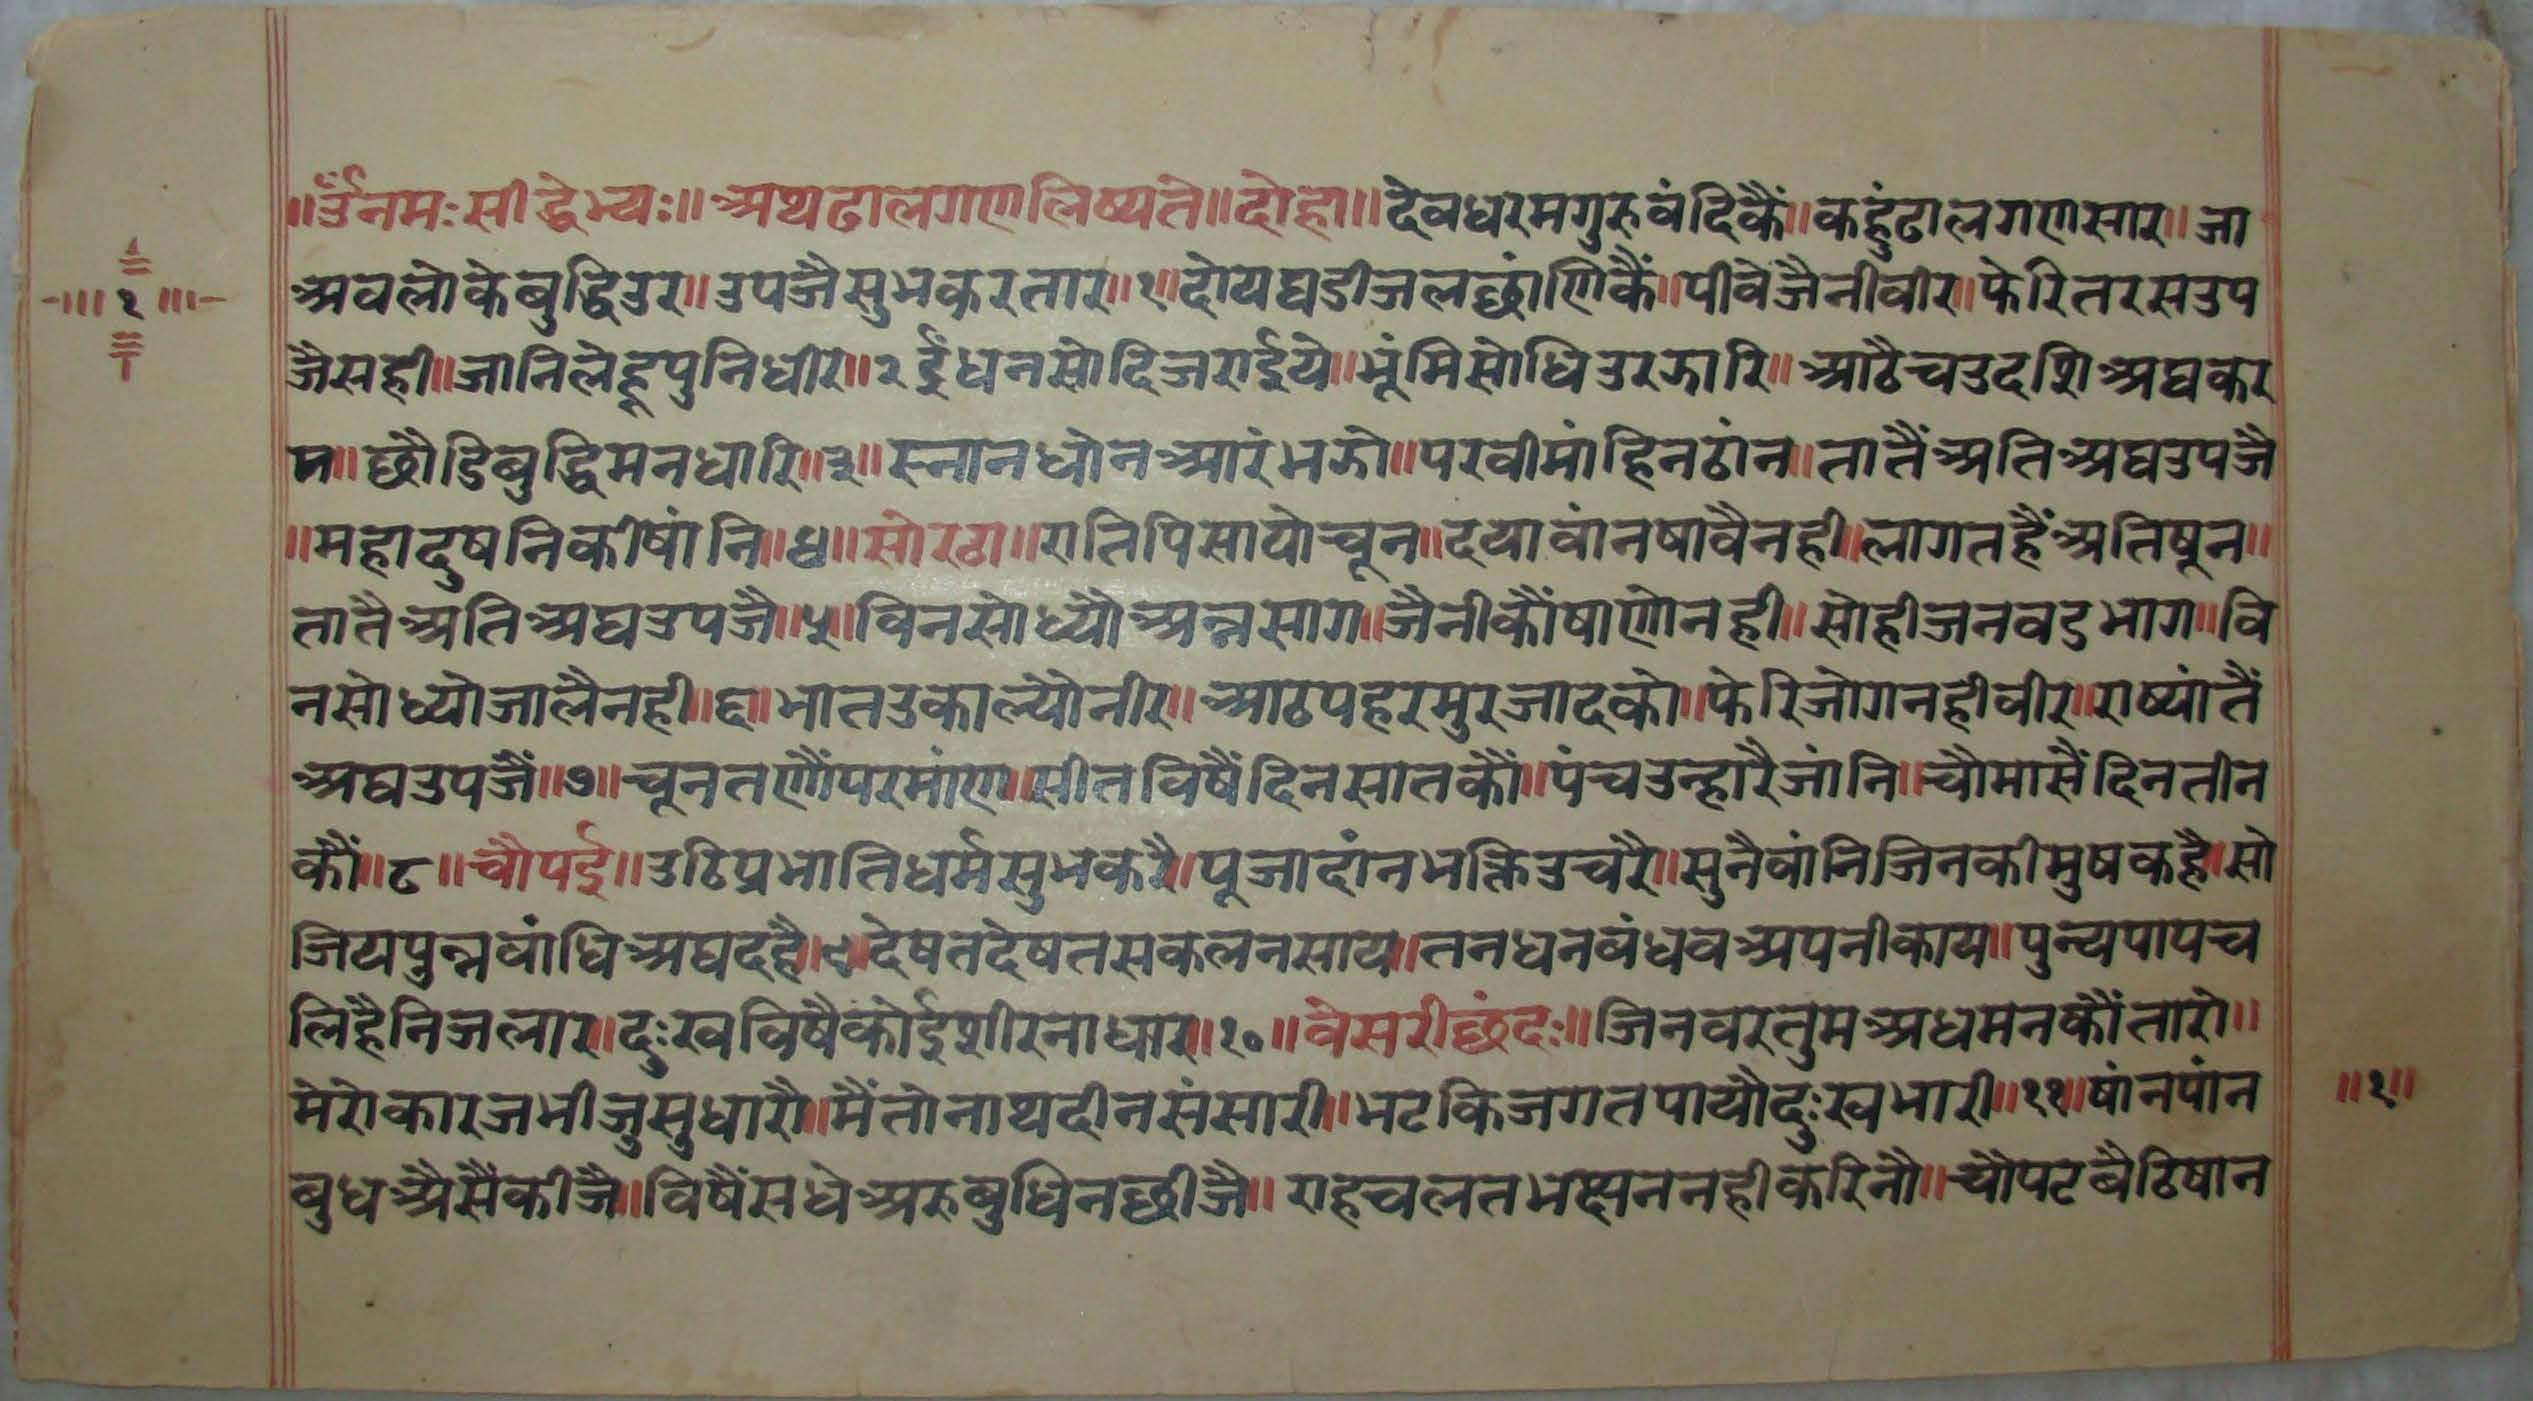 ॥ॐनमःसीद्धेभ्यः॥अथढालगणलिष्यते॥दोहा॥देवधरमगुरुवंदिकैं॥कहुंढालगणसार॥जा
अवलोकेबुद्धिउर॥उपजैसुभकरतार॥१॥दोयघडीजलछांणिकैं॥पीवेंजैनीवीर॥फेरितरसउप
जैसही॥जानिलेहूपुनिधीर॥२ईंधनसोदिजराईये॥भूंमिसोधिउरझारि॥आठैचउदशिअघकर
म॥छौडिबुद्धिमनधारि॥३॥स्नानधोनआरंभझो॥परवीमांहिनठांन॥तातैंअतिअघउपजै
॥महादुषनिकीषांनि॥४॥सोरठा॥रातिपिसायोचून॥दयावांनषावैनही॥लागतहैंअतिषून॥
तातैअतिअघउपजै॥५॥विनसोध्योअन्नसाग॥जैनीकौंषाणोनही॥सोहीजनवडभाग॥वि
नसोध्योजालैनही॥६॥भातउकाल्योनीर॥आठपहरमुरजादको॥फेरिजोगनहीवीर॥राष्यांतैं
अघउपजैं॥७॥चूनतणौंपरमांण॥सीतविषैंदिनसातकौं॥पंचउन्हारैजांनि॥चौमासैंदिनतीन
कौं॥८॥चौपई॥उठिप्रभातिधर्मसुभकरै॥पूजादांनभक्तिउचरै॥सुनैवांनिजिनकीमुषकहै॥सो
जियपुन्नवांधिअघदहै॥९॥देषतदेषतसकलनसाय॥तनधनवंधवअपनीकाय॥पुन्यपापच
लिहैनिजलार॥दुःखविषैकोईशीरनाधार॥१०॥वेसरीछंदः॥जिनवरतुमअधमनकौंतारो॥
मेरोकारजभीजुसुधारौ॥मैंतोनाथदीनसंसारी॥भटकिजगतपायौदुःखभारी॥११॥षांनपांन
बुधअैसैंकीजै॥विषैंसधेअरुबुधिनछीजै॥राहचलतभक्षननहीकरिनौ॥चौपटबैठिषान
१
॥१॥